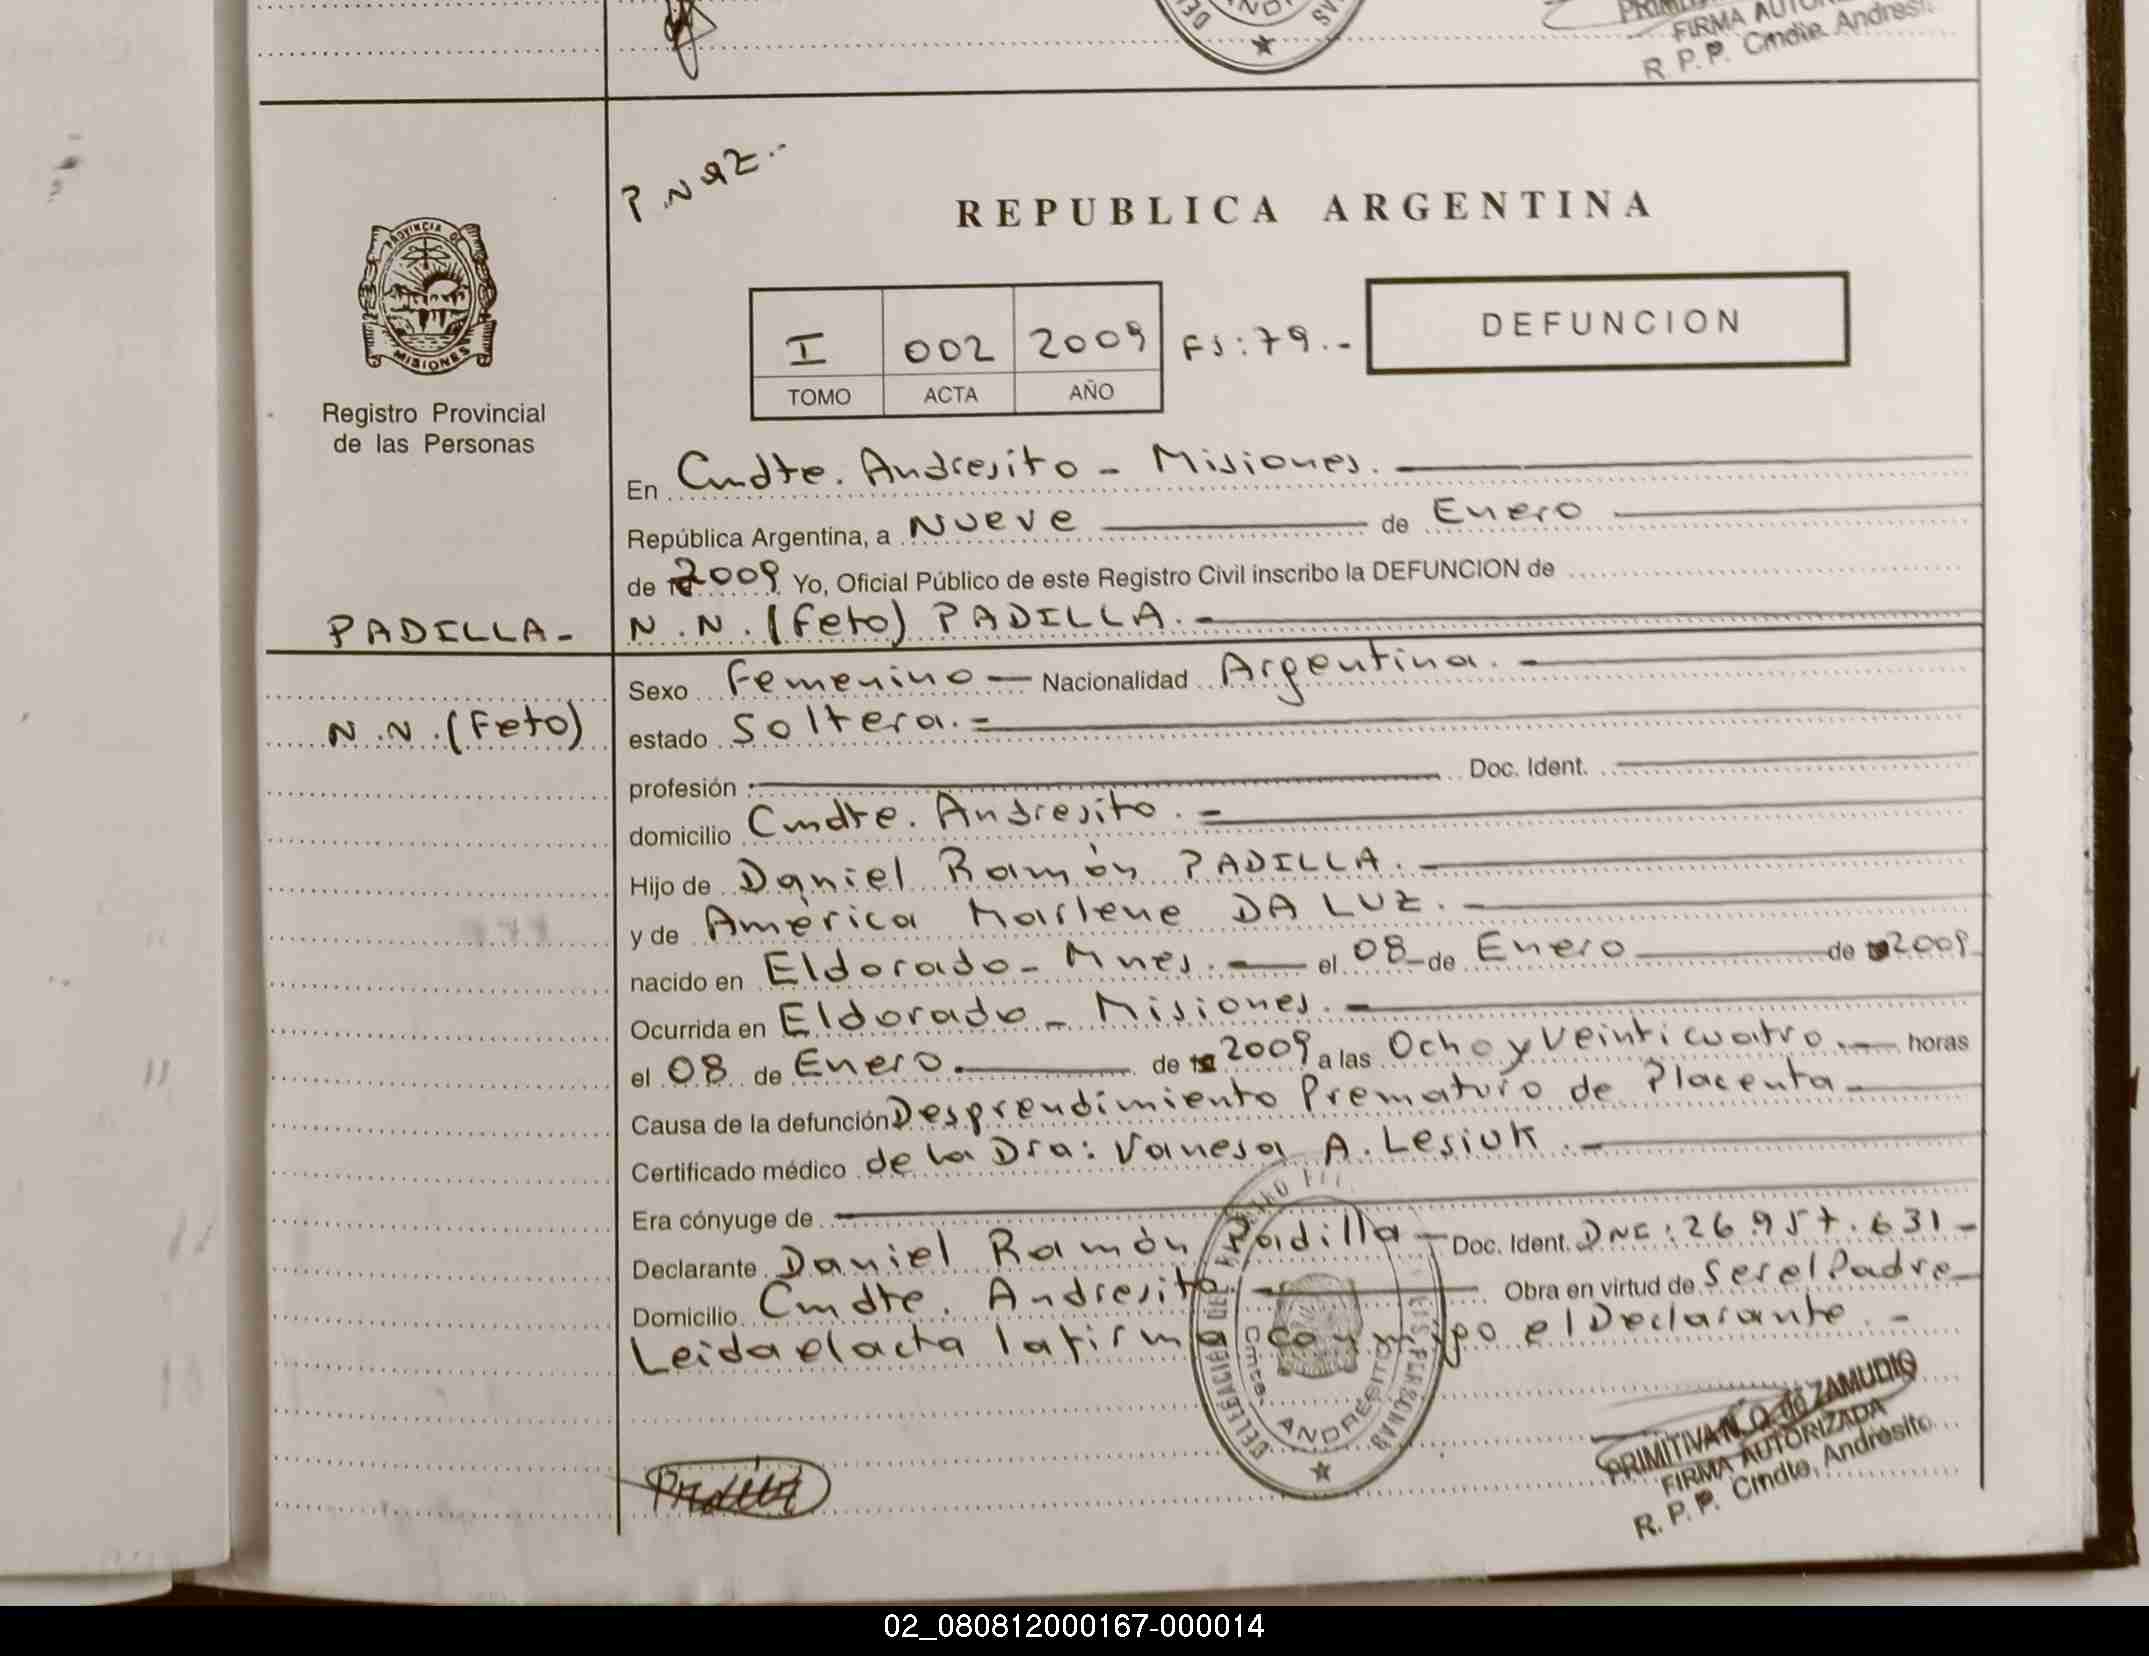 FIRMA AUTOR
R. P. P. Cmdte. Andresi
P. Naz..
REPUBLICA ARGENTINA
PROVINCIA DE MISIONES
I 002 2009 Fs: 79.-
DEFUNCION
TOMO ACTA AÑO
Registro Provincial
de las Personas
En Cmdte. Andresito - Misiones.
República Argentina, a Nueve de Enero
de 2009 Yo, Oficial Público de este Registro Civil inscribo la DEFUNCION de
PADILLA- N.N. (Feto) PADILLA.-
Sexo Femenino - Nacionalidad Argentina.-
N.N. (Feto) estado Soltera.-
profesión Doc. Ident.
domicilio Cmdte. Andresito.-
Hijo de Daniel Ramón PADILLA.-
y de América Marlene DA LUZ.-
nacido en Eldorado - Mnes.- el 08 de Enero de 2009
Ocurrida en Eldorado - Misiones.-
el 08 de Enero. de 2009 a las Ocho y Veinticuatro.- horas
Causa de la defunción Desprendimiento Prematuro de Placenta-
Certificado médico de la Dra: Vanesa A. Lesiuk.-
Era cónyuge de
Declarante Daniel Ramón Padilla - Doc. Ident. DNI: 26.957.631-
Domicilio Cmdte. Andresito. Obra en virtud de Ser el Padre-
Leida el acta la firma conmigo el Declarante.-
Cmte. ANDRESITO
Padilla
PRIMITIVA N. O. de ZAMUDIO
FIRMA AUTORIZADA
R. P. P. Cmdte. Andresito
02_080812000167-000014